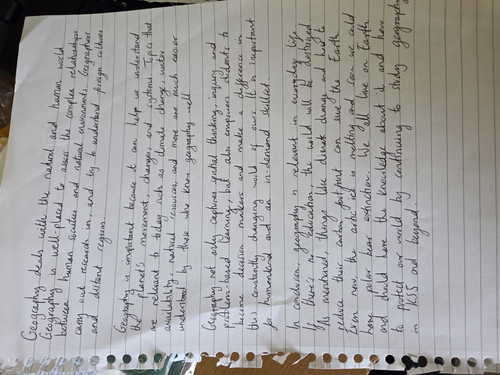 Geography deals with the natural and human world
Geography is well-placed to assess the complex relationships
between human societies and natural environment. Geographers
carry out research in, and try to understand foreign cultures
and distant regions.
Geography is important because it can help us understand
the planet's movement, changes, and systems. Topics that
are relevant to today such as climate change, water
availability, natural resources, and more are much easier
understood by those who know geography well.
Geography not only captures spatial thinking, inquiry and
problem-based learning, but also empowers students to
become decision makers and make a difference in
this constantly changing world of ours. It is important
for humankind and an in-demand skillset.
In conclusion, geography is relevant in everyday life.
If there's no education, the world will be destroyed
As mentioned, things like climate change and how to
reduce their carbon footprint can save the Earth.
Even now, the arctic ice is melting and soon we could
have polar bear extinction. We all live on Earth
and should have the knowledge about it and how
to protect our world by continuing to study geography
in KS5 and beyond.